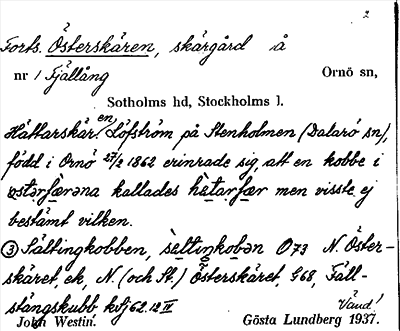 2
Forts. Österskären, skärgård å
nr 1 Fjällång Ornö sn,
Sotholms hd, Stockholms l.
Hättarskär. en Löfström på Stenholmen (Dalarö sn),
född i Ornö 27/2 1862 erinrade sig, att en kobbe i
östərfærəna kallades hetarfær men visste ej
bestämt vilken.
③ Sältingkobben, sèltiŋkobən Ö73 N. Öster-
skäret, ek, N. (och St.) Österskäret, G68, Fjäll-
ångskubb kvf 62.12 II Vänd!
John Westin. Gösta Lundberg 1937.